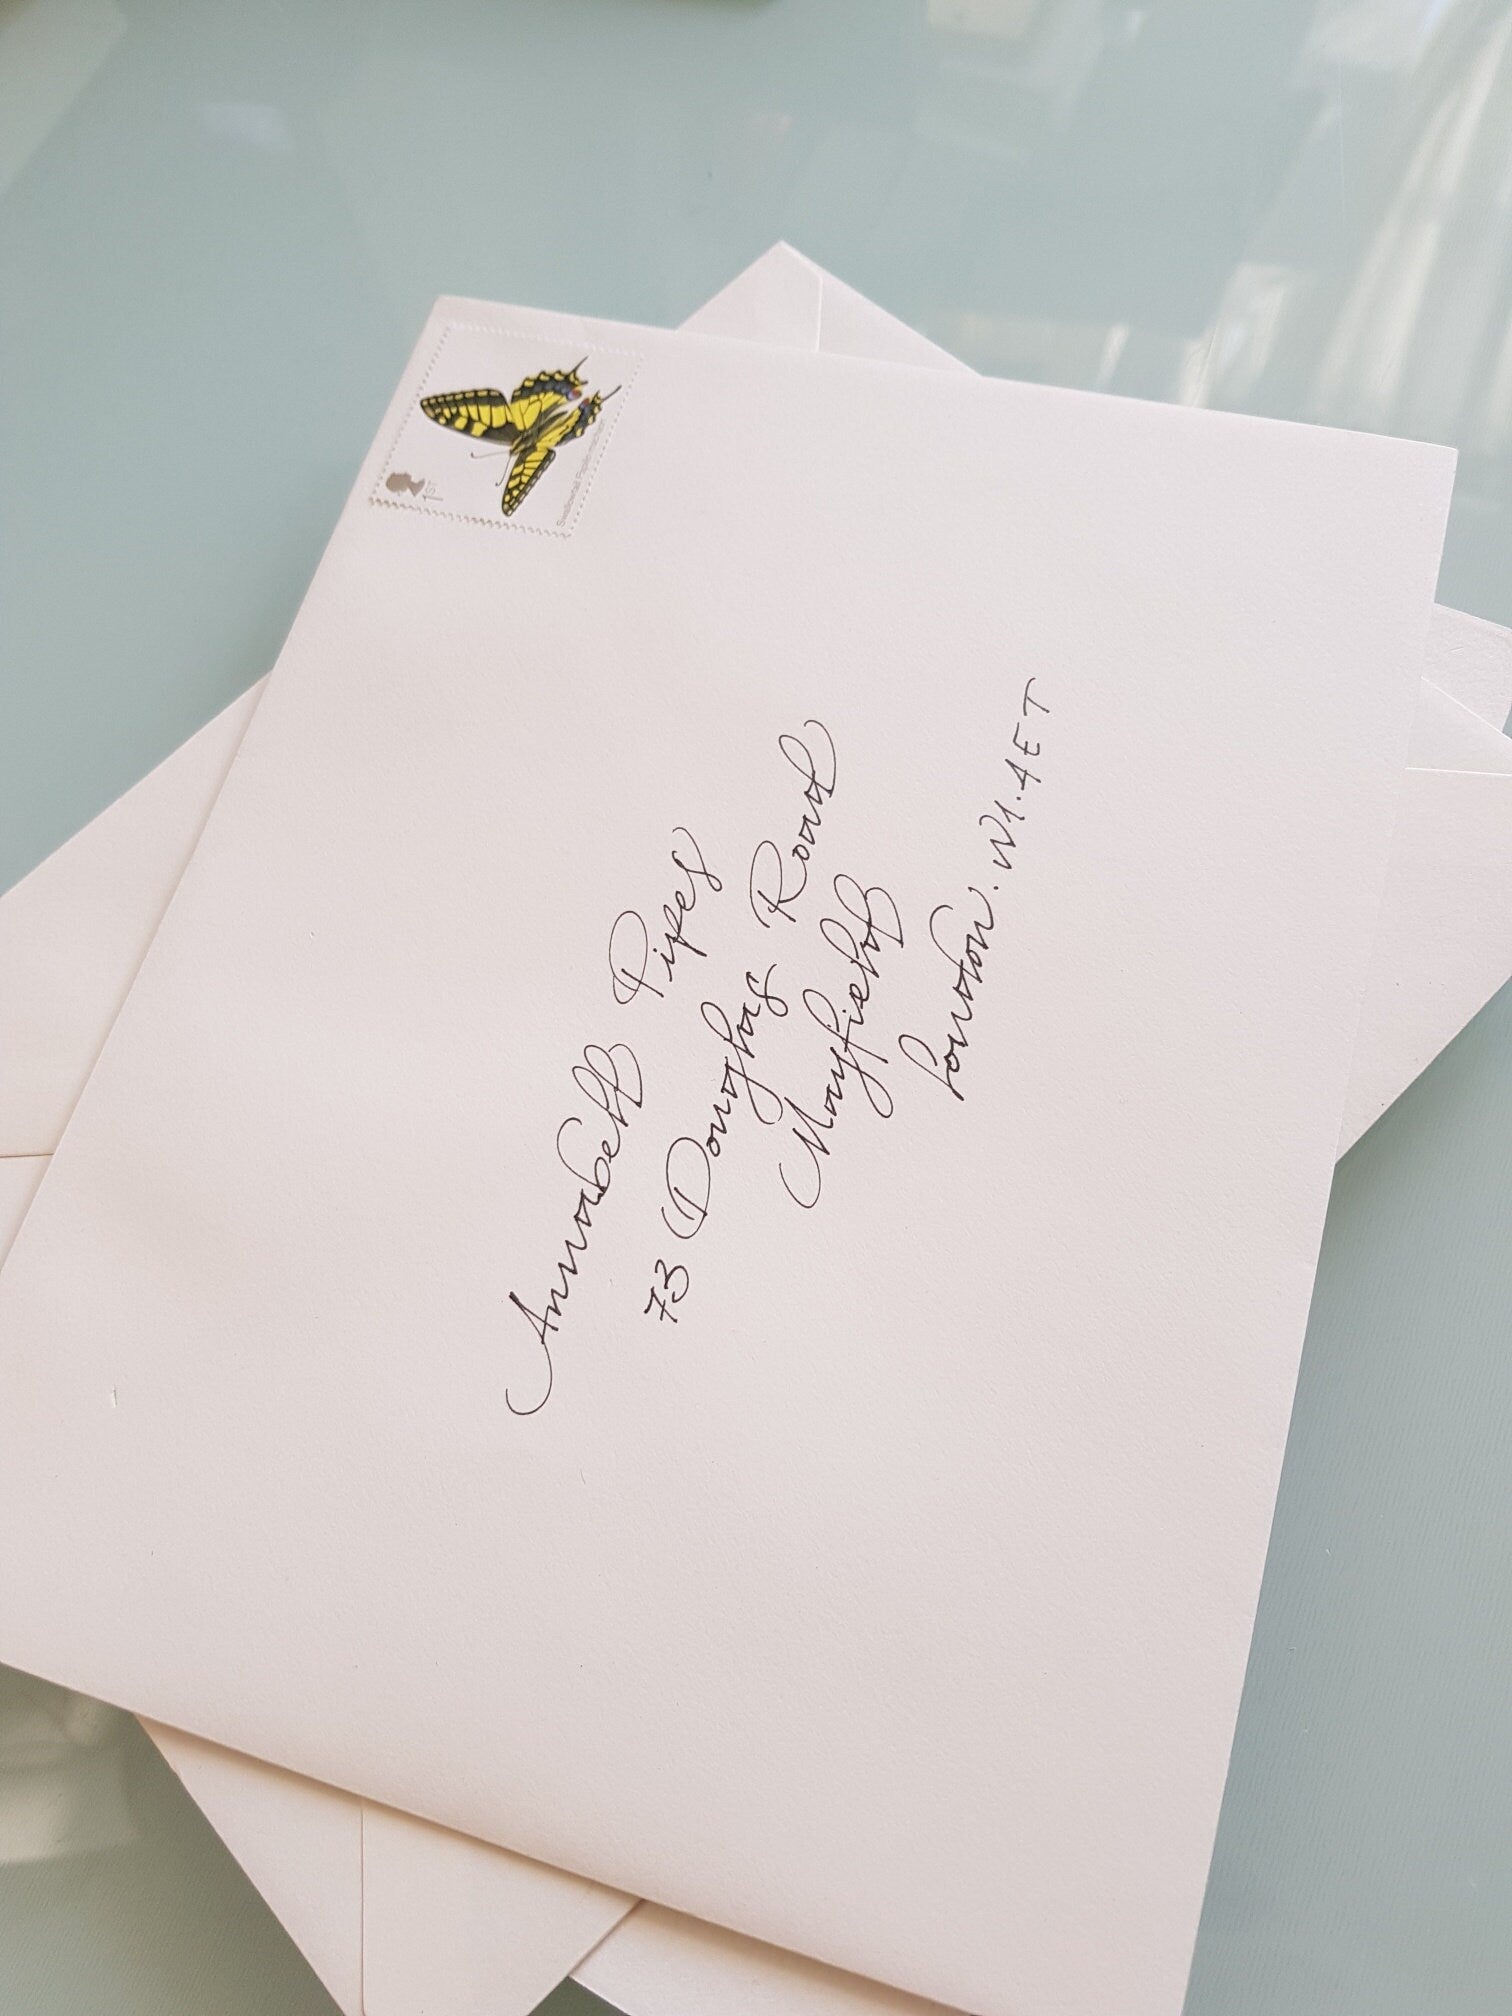 1ST
Swallowtail Papilio machaon
Annabell Pipes
73 Douglas Road
Mayfield
London. W1. 4ET